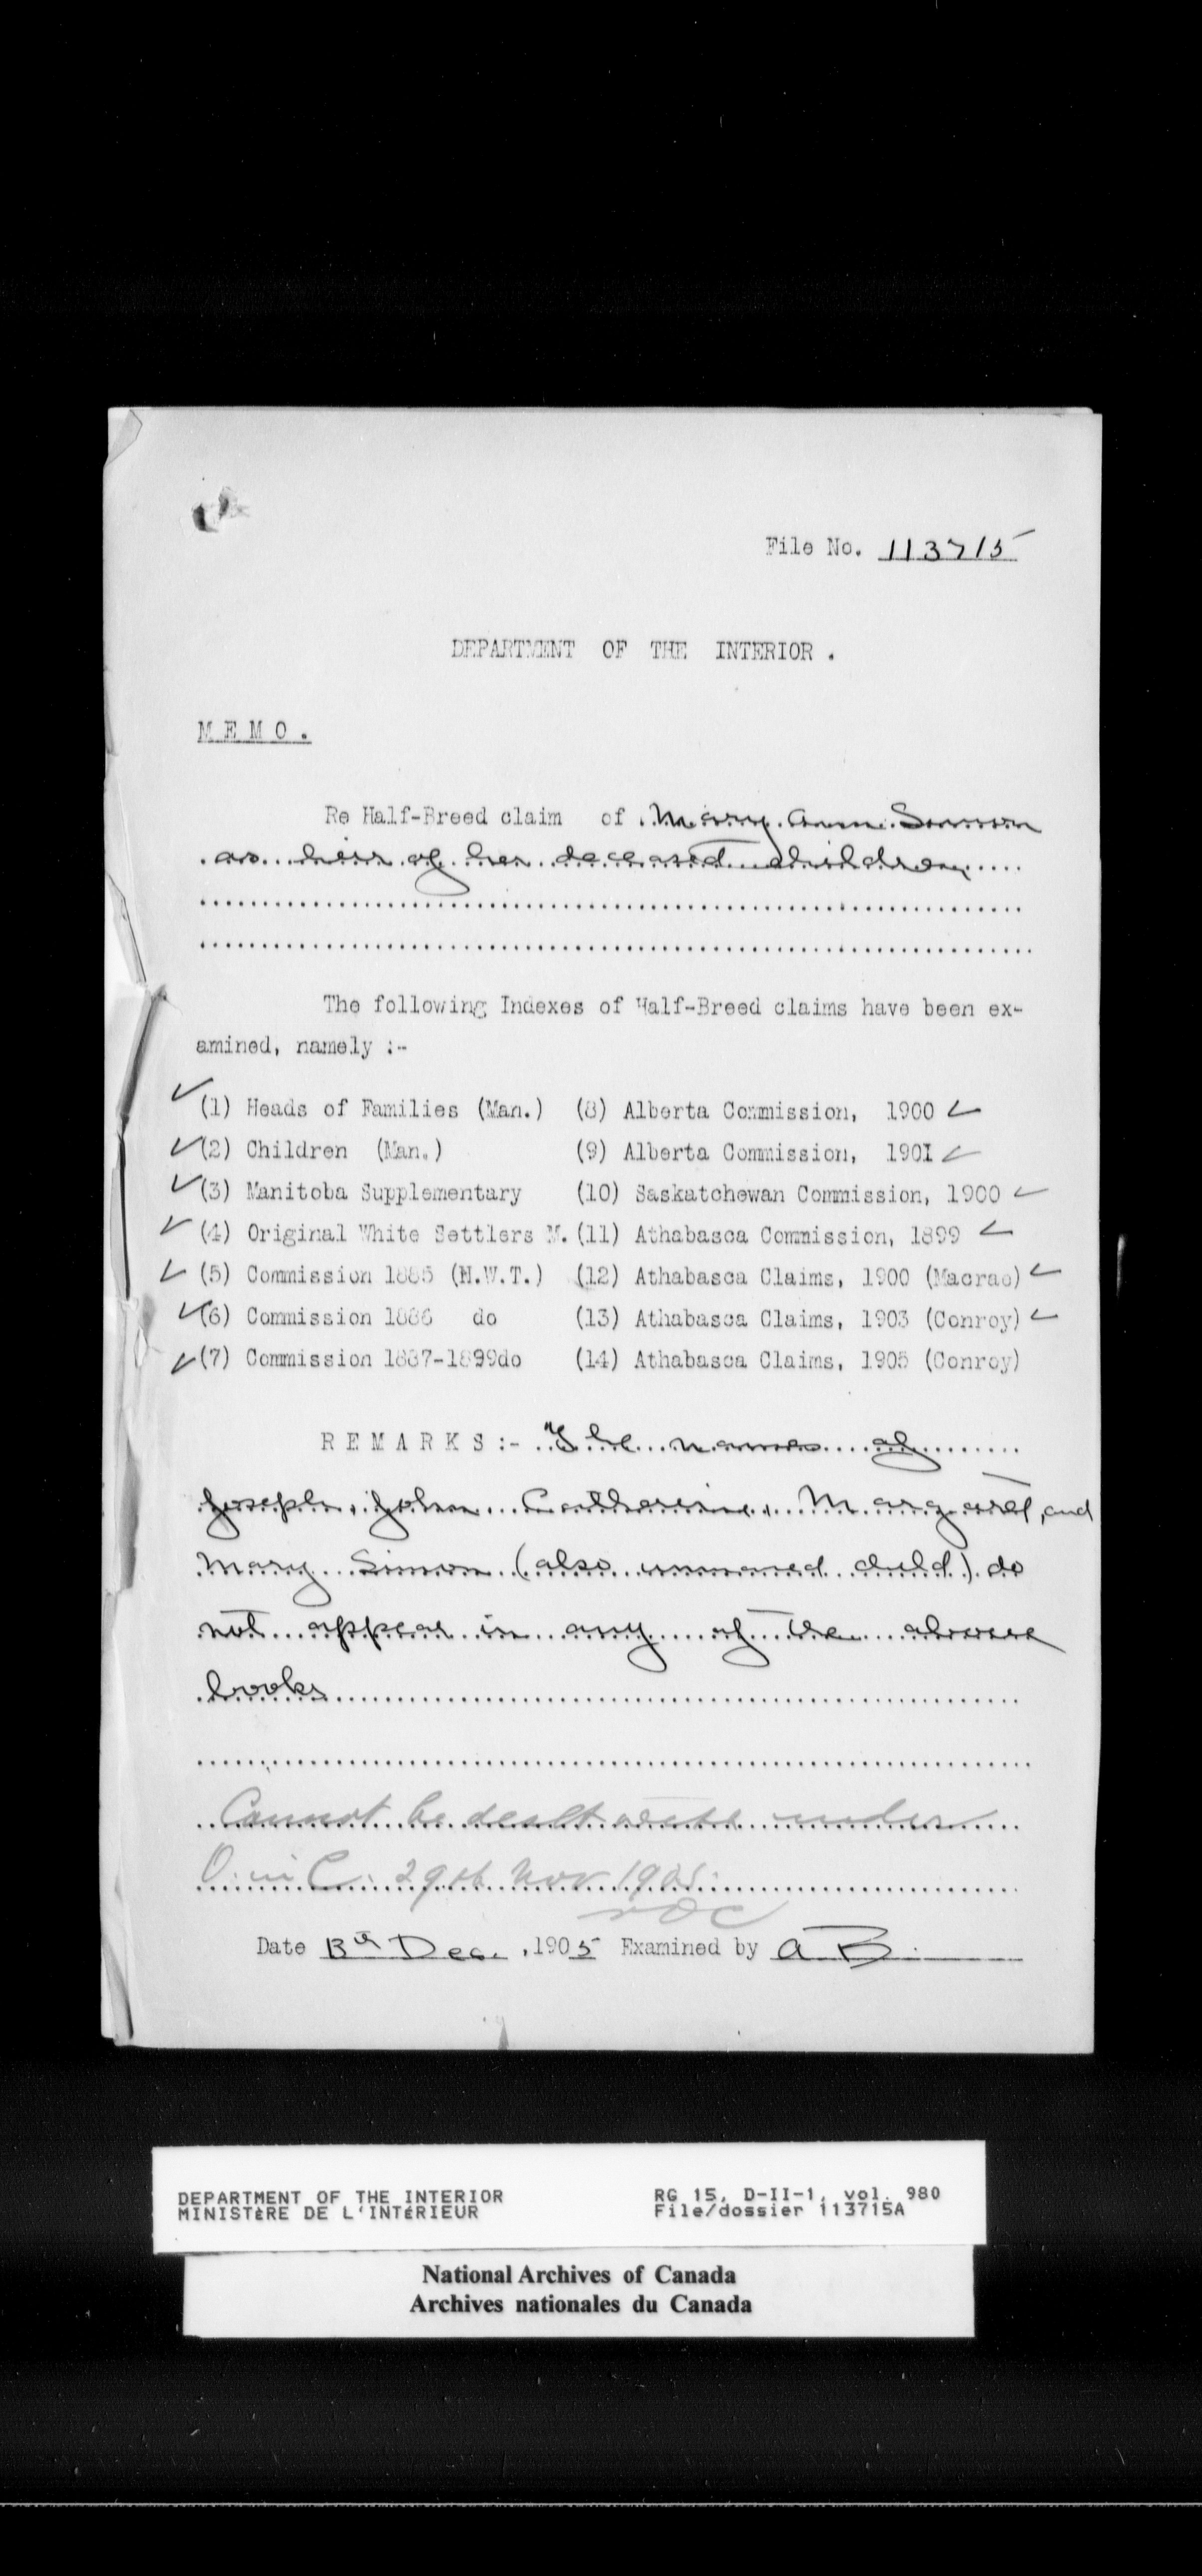 File No. 113715
DEPARTMENT OF THE INTERIOR .
M E M O .
Re Half-Breed claim of Mary Ann Simon
as heir of her deceased children
The following Indexes of Half-Breed claims have been ex-
amined, namely :-
✓ (1) Heads of Families (Man.) (8) Alberta Commission, 1900 ✓
✓ (2) Children (Man.) (9) Alberta Commission, 1901 ✓
✓ (3) Manitoba Supplementary (10) Saskatchewan Commission, 1900 ✓
✓ (4) Original White Settlers M. (11) Athabasca Commission, 1899 ✓
✓ (5) Commission 1885 (N.W.T.) (12) Athabasca Claims, 1900 (Macrae) ✓
✓ (6) Commission 1886 do (13) Athabasca Claims, 1903 (Conroy) ✓
✓ (7) Commission 1887-1899do (14) Athabasca Claims, 1905 (Conroy)
R E M A R K S :- The names of
Joseph, John Catherine, Margaret, and
Mary Simon (also unnamed child) do
not appear in any of the above
books
Cannot be dealt with under
O. in C. 29th Nov 1905.
Date Dec. , 1905 Examined by A B.
DEPARTMENT OF THE INTERIOR RG 15, D-II-1, vol. 980
MINISTÈRE DE L'INTÉRIEUR File/dossier 113715A
National Archives of Canada
Archives nationales du Canada